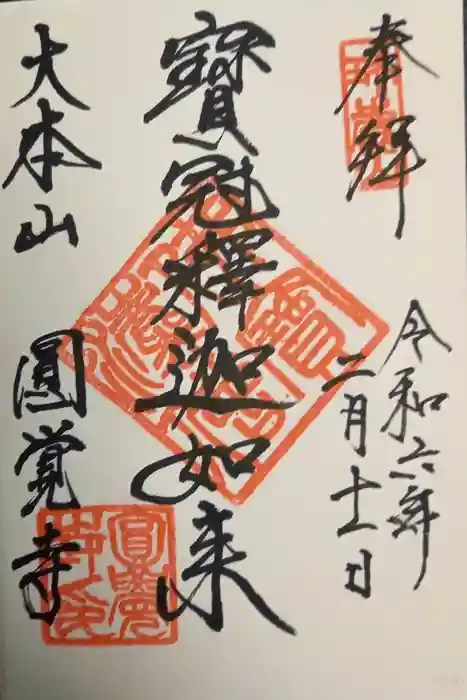 奉拝
令和六年
二月十一日
寶冠釋迦如来
大本山
圓覚寺